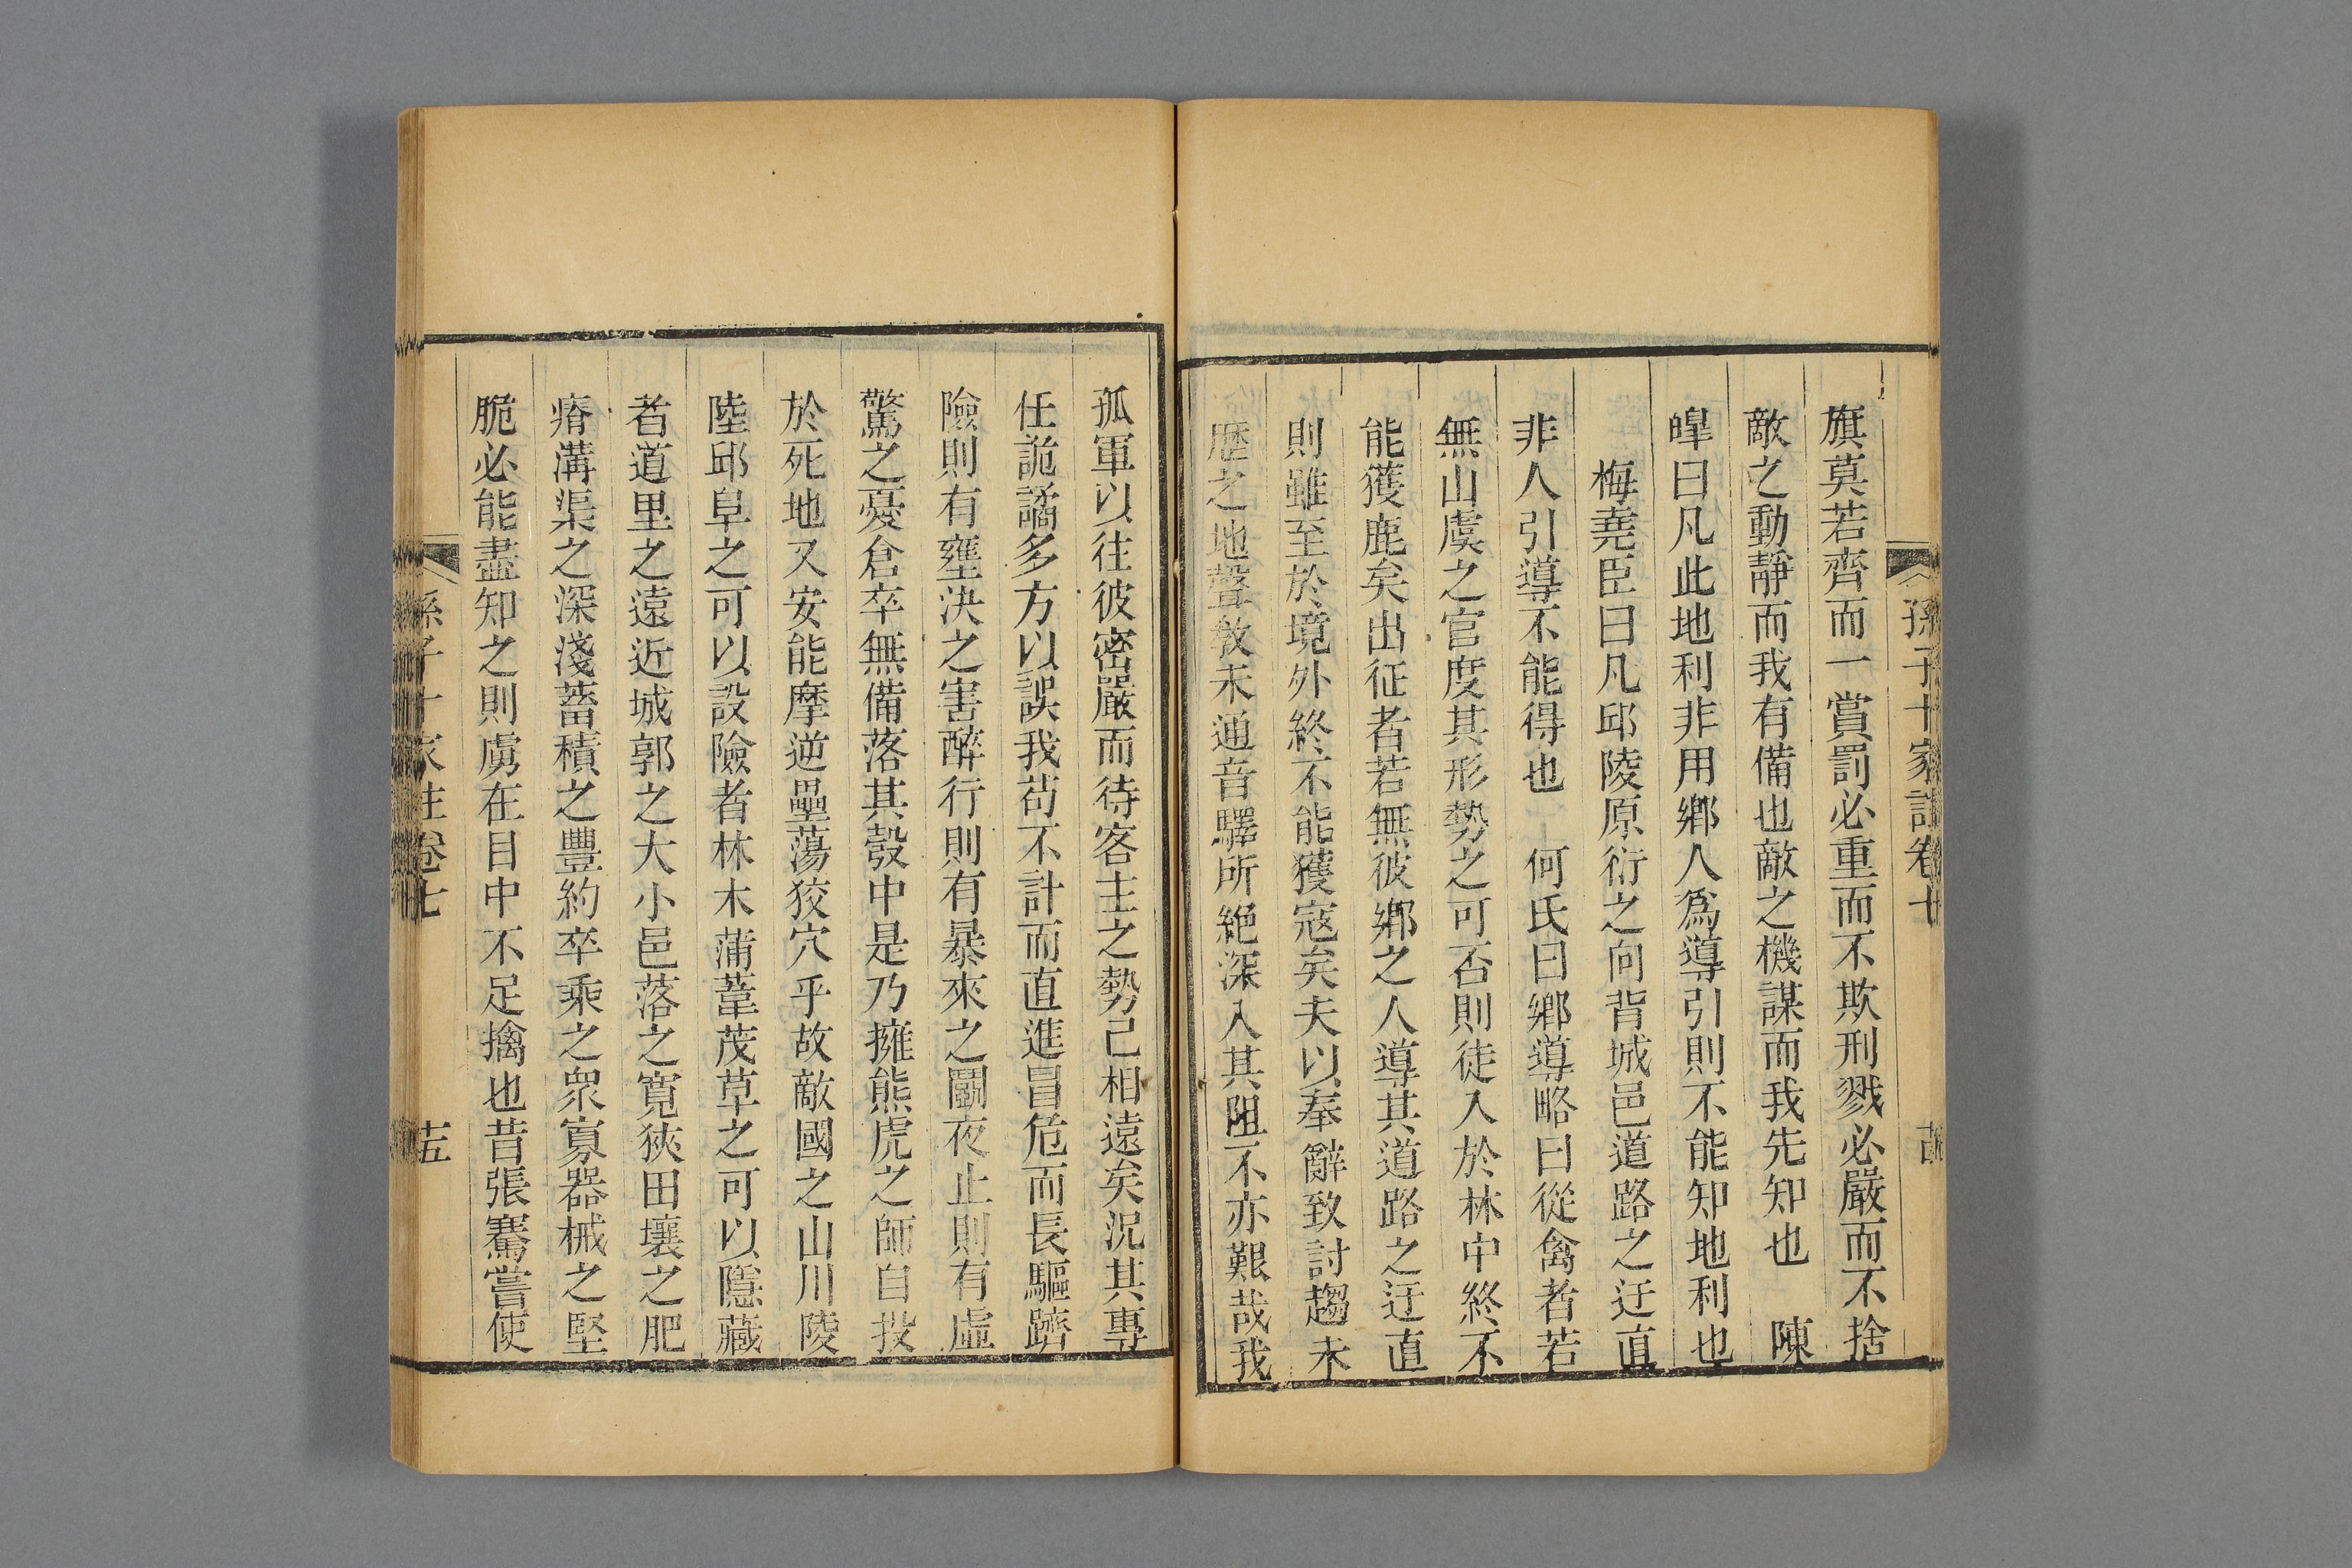 孫子十家註卷七
旗莫若齊而一賞罰必重而不欺刑戮必嚴而不捨
敵之動靜而我有備也敵之機謀而我先知也　陳
皥曰凡此地利非用鄉人爲導引則不能知地利也
梅堯臣曰凡邱陵原衍之向背城邑道路之迂直
非人引導不能得也　何氏曰鄉導略曰從禽者若
無山虞之官度其形勢之可否則徒入於林中終不
能獲鹿矣出征者若無彼鄉之人導其道路之迂直
則雖至於境外終不能獲寇矣夫以奉辭致討趨未
歷之地聲敎未通音驛所絕深入其阻不亦艱哉我
孤軍以往彼密嚴而待客主之勢已相遠矣況其專
任詭譎多方以誤我苟不計而直進冒危而長驅躋
險則有壅決之害醉行則有暴來之鬭夜止則有虛
驚之憂倉卒無備落其彀中是乃擁熊虎之師自投
於死地又安能摩逆壘蕩狡穴乎故敵國之山川陵
陸邱阜之可以設險者林木蒲葦茂草之可以隱藏
者道里之遠近城郭之大小邑落之寬狹田壤之肥
瘠溝渠之深淺蓄積之豐約卒乘之眾寡器械之堅
脆必能盡知之則虜在目中不足擒也昔張騫嘗使
孫子十家註卷七
十五